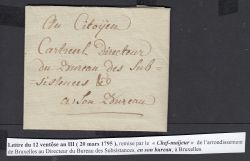 Au Citoÿen
Cartreul Directeur
du Bureau des Sub-
sistances &c
a son Bureau
Lettre du 12 ventôse an III ( 20 mars 1795 ), remise par le « Chef-maijeur » de l'arrondissement
de Bruxelles au Directeur du Bureau des Subsistances, en son bureau, à Bruxelles